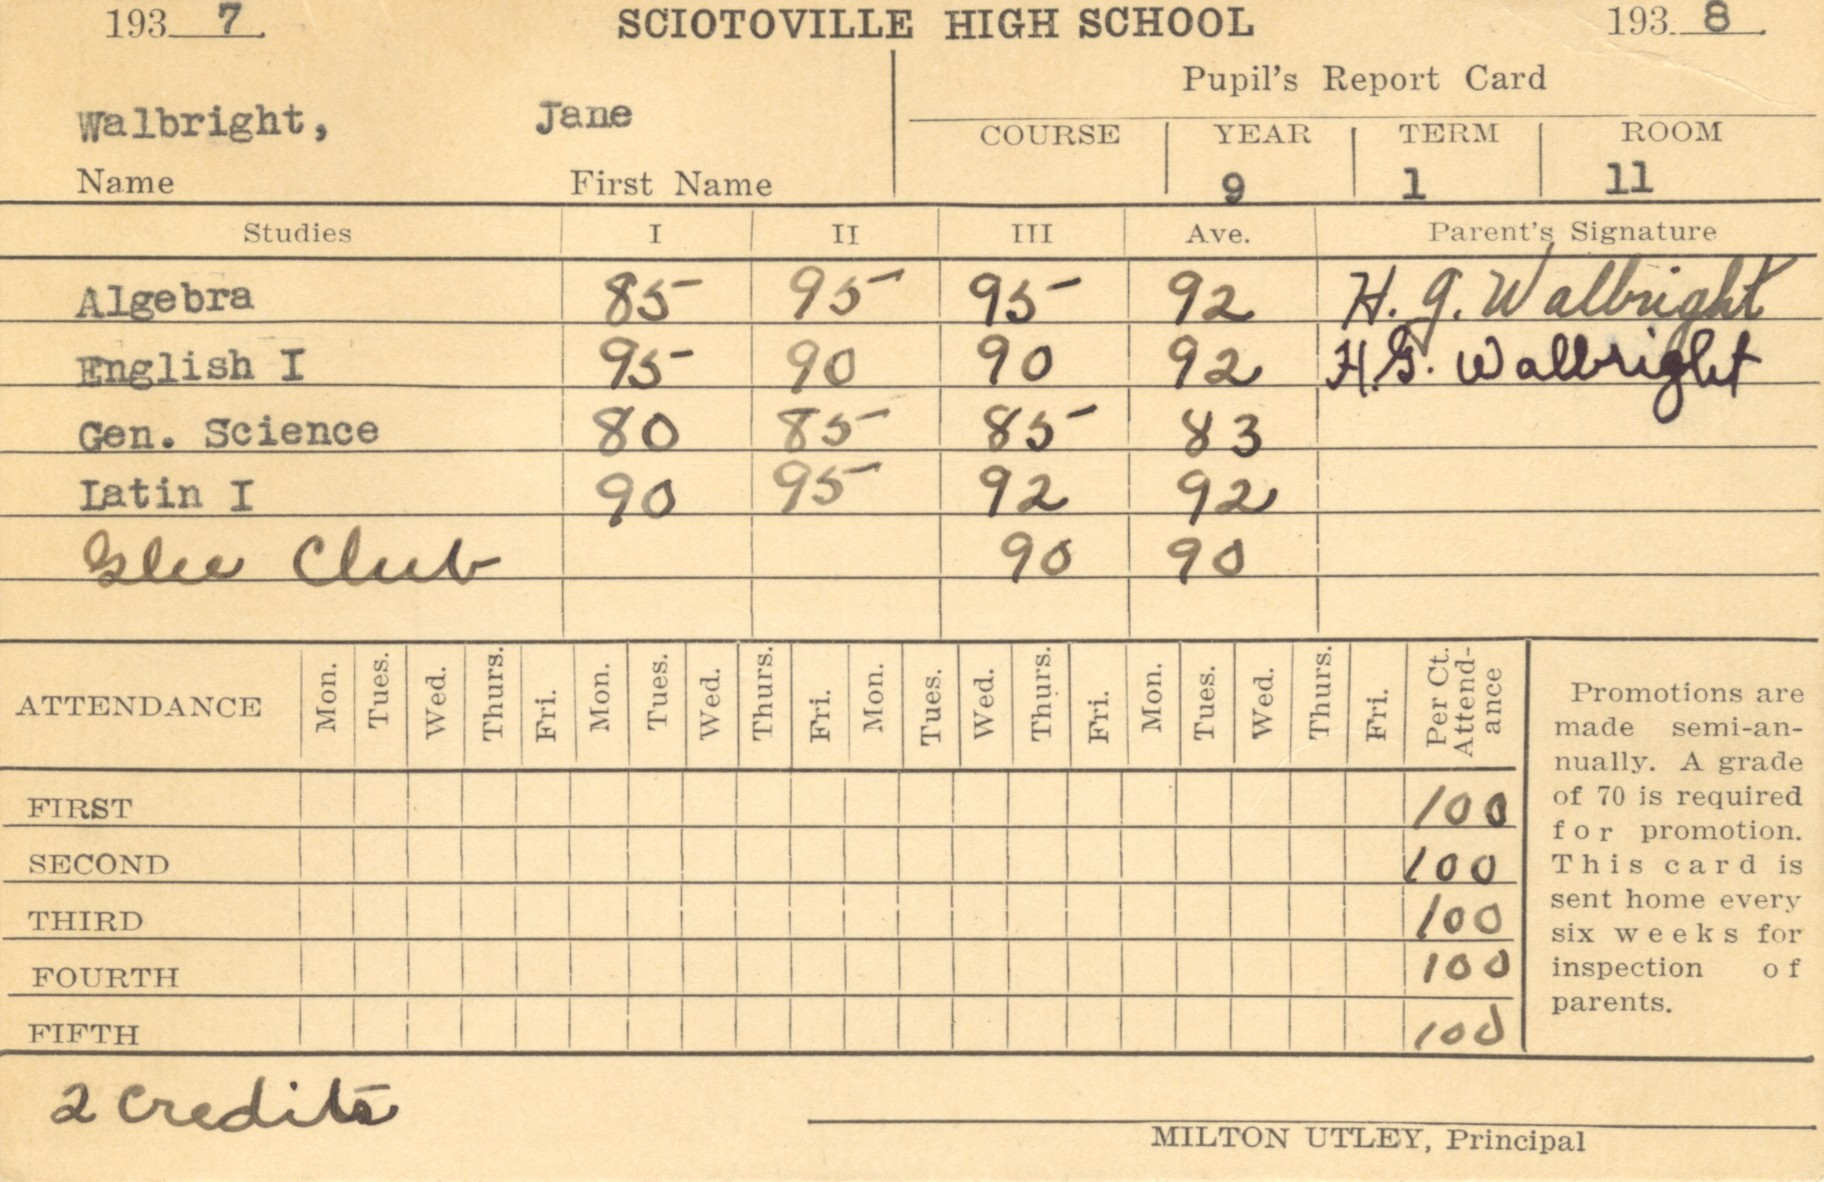 193 7 SCIOTOVILLE HIGH SCHOOL 193 8
Pupil's Report Card
Walbright, Jane
COURSE YEAR TERM ROOM
Name First Name 9 1 11
Studies I II III Ave. Parent's Signature
Algebra 85 95 95 92 H. G. Walbright
English I 95 90 90 92 H.G. Walbright
Gen. Science 80 85 85 83
Latin I 90 95 92 92
Glee Club 90 90
ATTENDANCE Mon. Tues. Wed. Thurs. Fri. Mon. Tues. Wed. Thurs. Fri. Mon. Tues. Wed. Thurs. Fri. Mon. Tues. Wed. Thurs. Fri. Per Ct. Attend-ance
FIRST 100
SECOND 100
THIRD 100
FOURTH 100
FIFTH 100
Promotions are
made semi-an-
nually. A grade
of 70 is required
for promotion.
This card is
sent home every
six weeks for
inspection of
parents.
2 credits
MILTON UTLEY, Principal